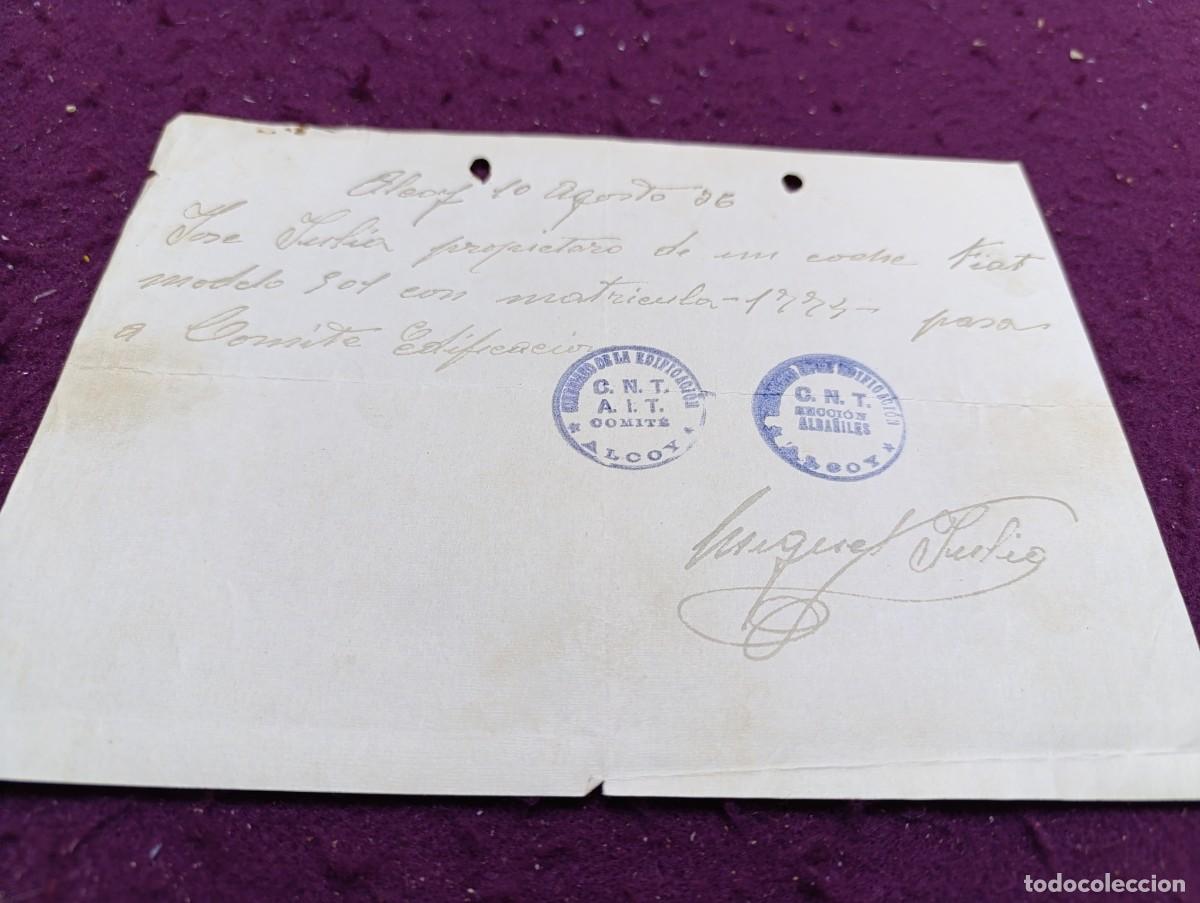 Alcoy 10 Agosto 36
Jose Julia propietaro de un coche Fiat
modelo 501 con matricula pasa
a Comite Edificacion
DE LA EDIFICACIÓN
C. N. T.
A. I. T.
COMITÉ
ALCOY
EDIFICACIÓN
C. N. T.
SECCIÓN
ALBAÑILES
ALCOY
Miguel Julia
todocoleccion